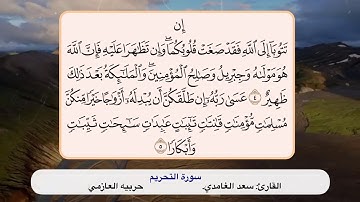 إِن
تَتُوبَآ إِلَى ٱللَّهِ فَقَدْ صَغَتْ قُلُوبُكُمَا ۖ وَإِن تَظَٰهَرَا عَلَيْهِ فَإِنَّ ٱللَّهَ
هُوَ مَوْلَىٰهُ وَجِبْرِيلُ وَصَٰلِحُ ٱلْمُؤْمِنِينَ ۖ وَٱلْمَلَٰٓئِكَةُ بَعْدَ ذَٰلِكَ
ظَهِيرٌ ٤ عَسَىٰ رَبُّهُۥٓ إِن طَلَّقَكُنَّ أَن يُبْدِلَهُۥٓ أَزْوَٰجًا خَيْرًا مِّنكُنَّ
مُسْلِمَٰتٍ مُّؤْمِنَٰتٍ قَٰنِتَٰتٍ تَٰٓئِبَٰتٍ عَٰبِدَٰتٍ سَٰٓئِحَٰتٍ ثَيِّبَٰتٍ
وَأَبْكَارًا ٥
سورة التحريم
القارئ: سعد الغامدي. حربيه العازمي